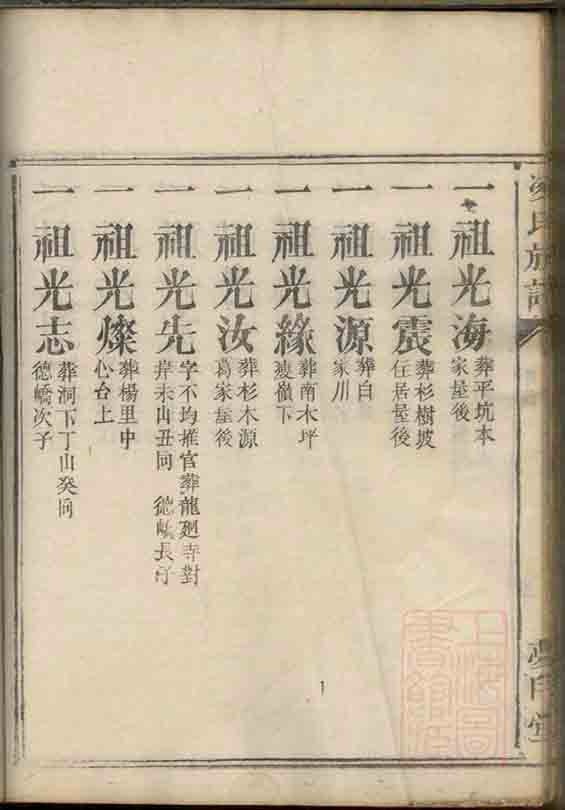 氏族譜
一祖光海 葬平坑本
家屋後
一祖光震 葬杉樹坡
任居屋後
一祖光源 葬白
家川
一祖光緣 葬南木坪
嶺下
一祖光汝 葬杉木源
葛家屋後
一祖光先 字不均推官葬龍廻寺對
岸未山丑向 德嶠長子
一祖光燦 葬楊里中
心台上
一祖光志 葬洞下丁山癸向
德嶠次子
上海圖
書館藏